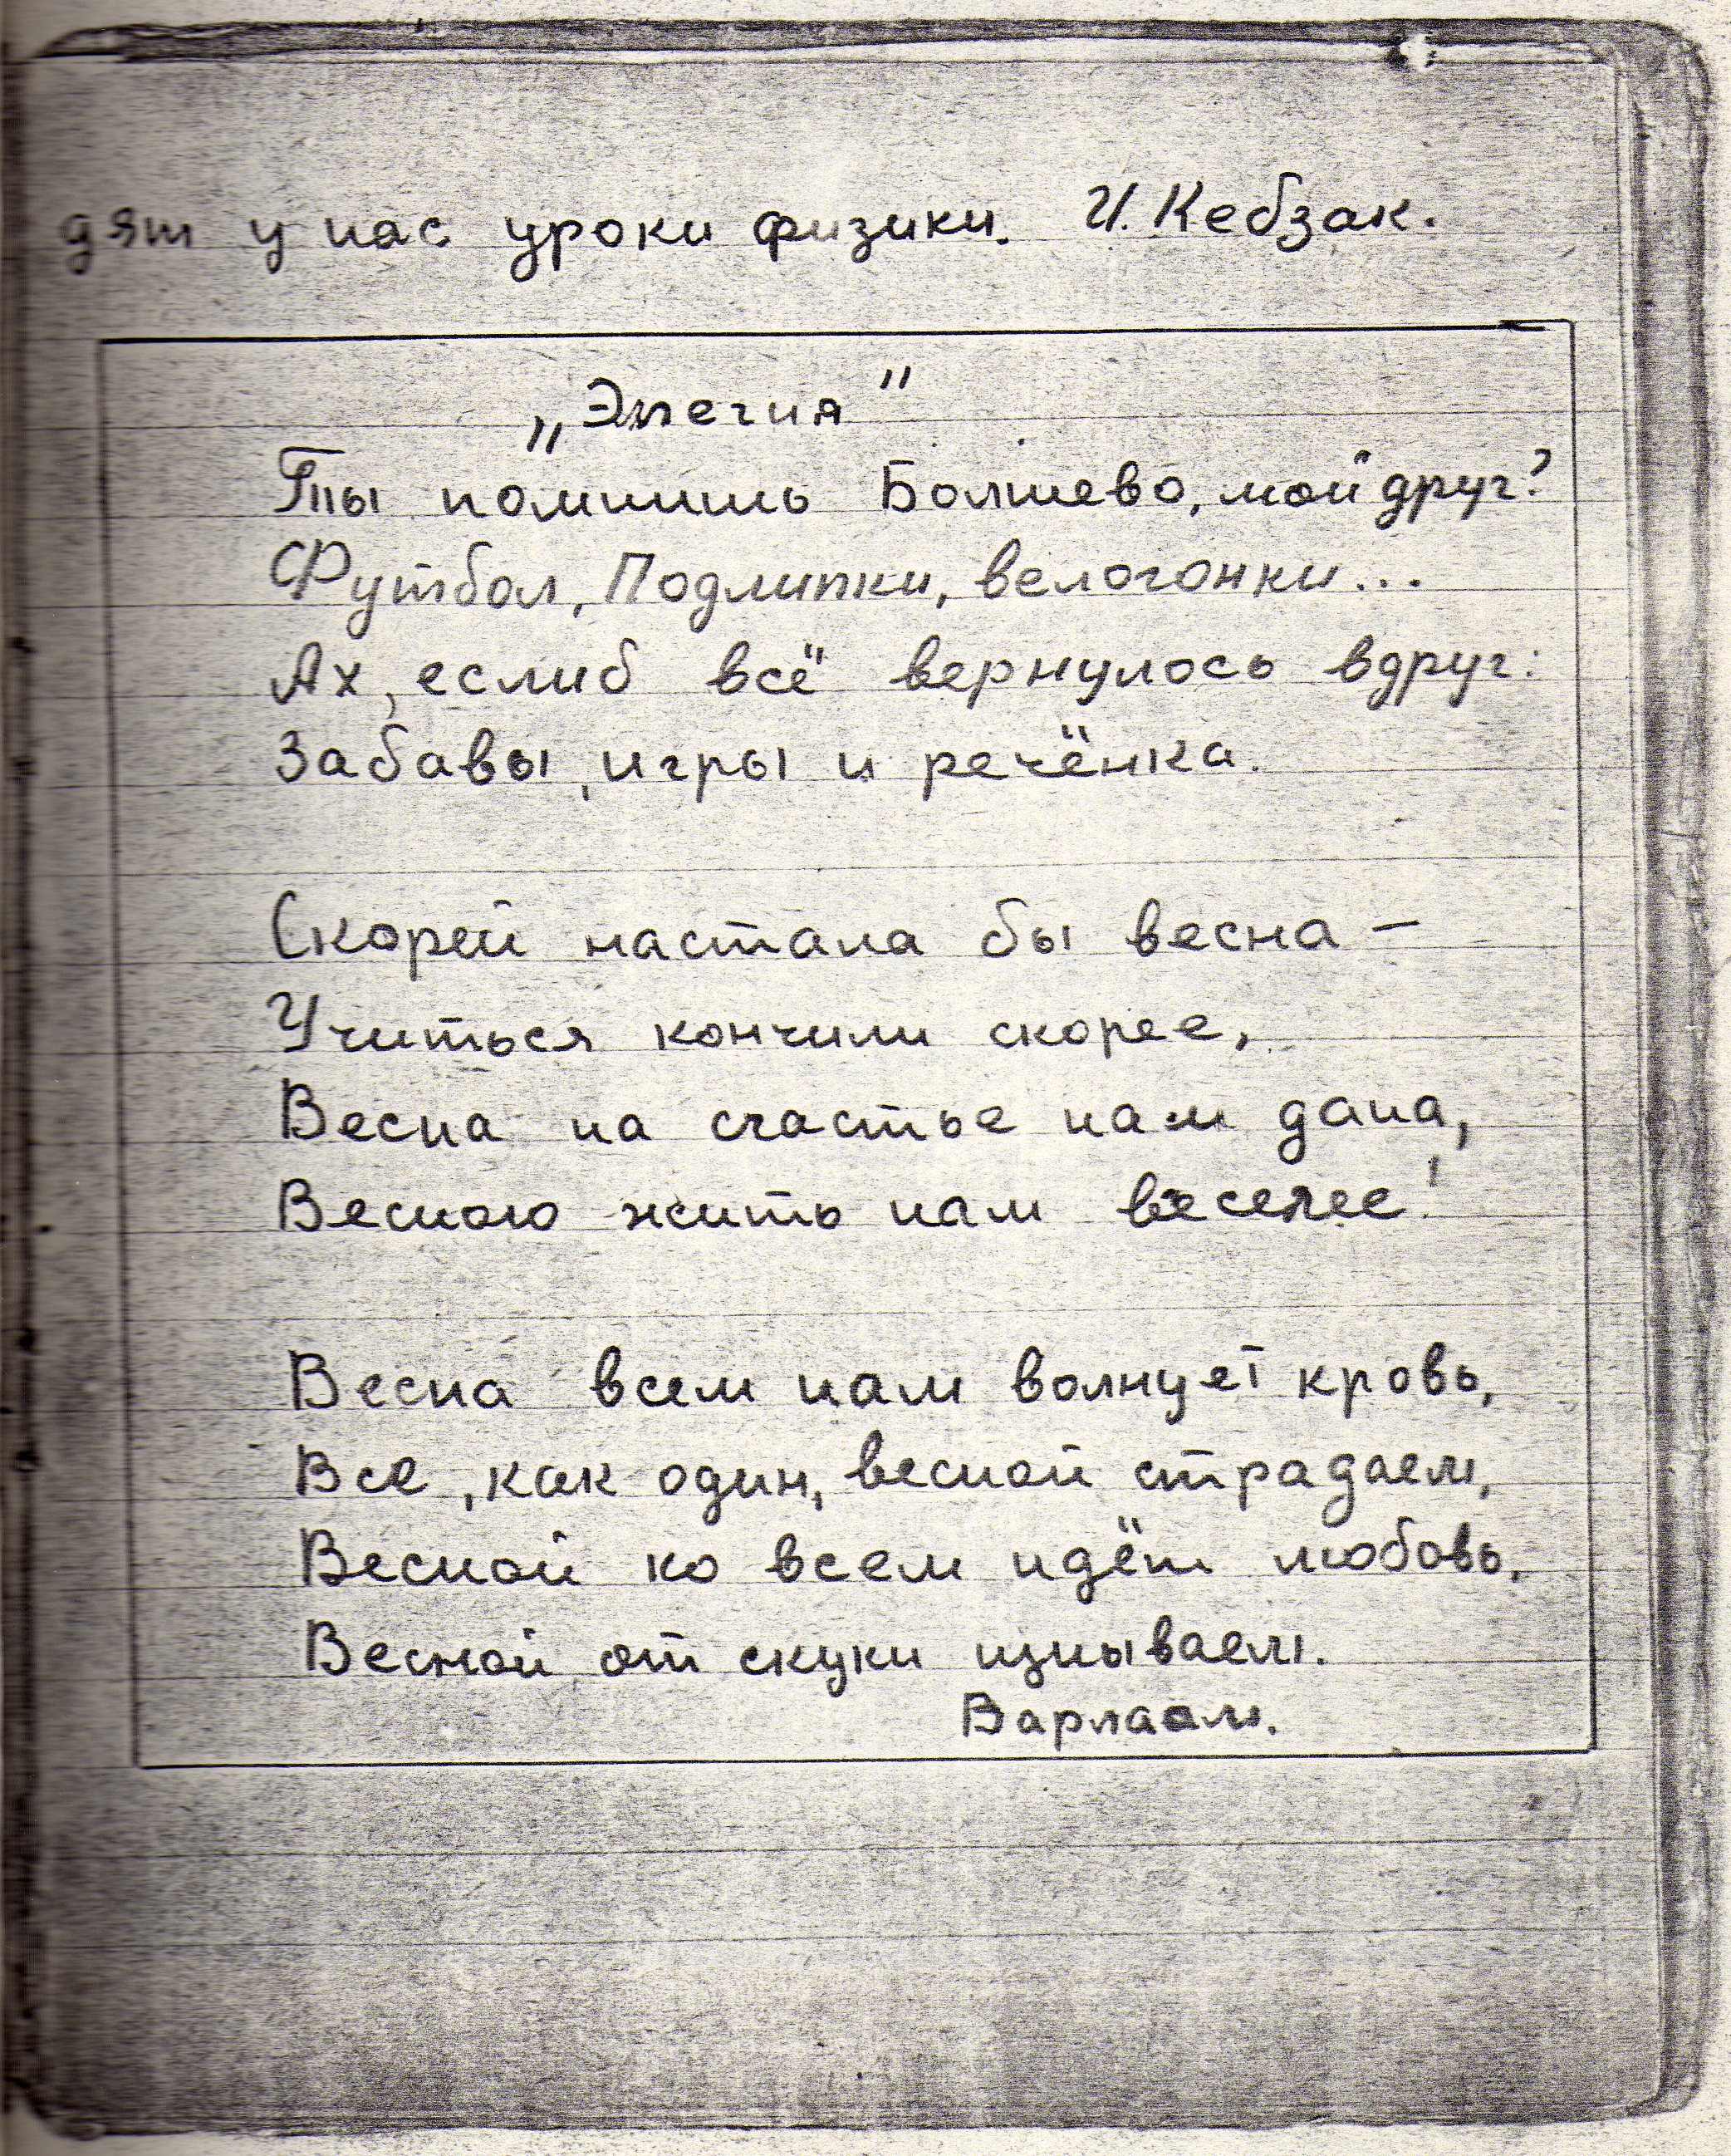 дят у нас уроки физики. И. Кебзак.
„Элегия"
Ты помнишь Болшево, мой друг?
Футбол, Подлипки, велогонки...
Ах, еслиб всё вернулось вдруг:
Забавы, игры и речёнка.
Скорей настала бы весна –
Учиться кончили скорее,
Весна на счастье нам дана,
Весною жить нам веселее!
Весна всем нам волнует кровь,
Все, как один, весной страдаем,
Весной ко всем идёт любовь,
Весной от скуки изнываем.
Варлаам.